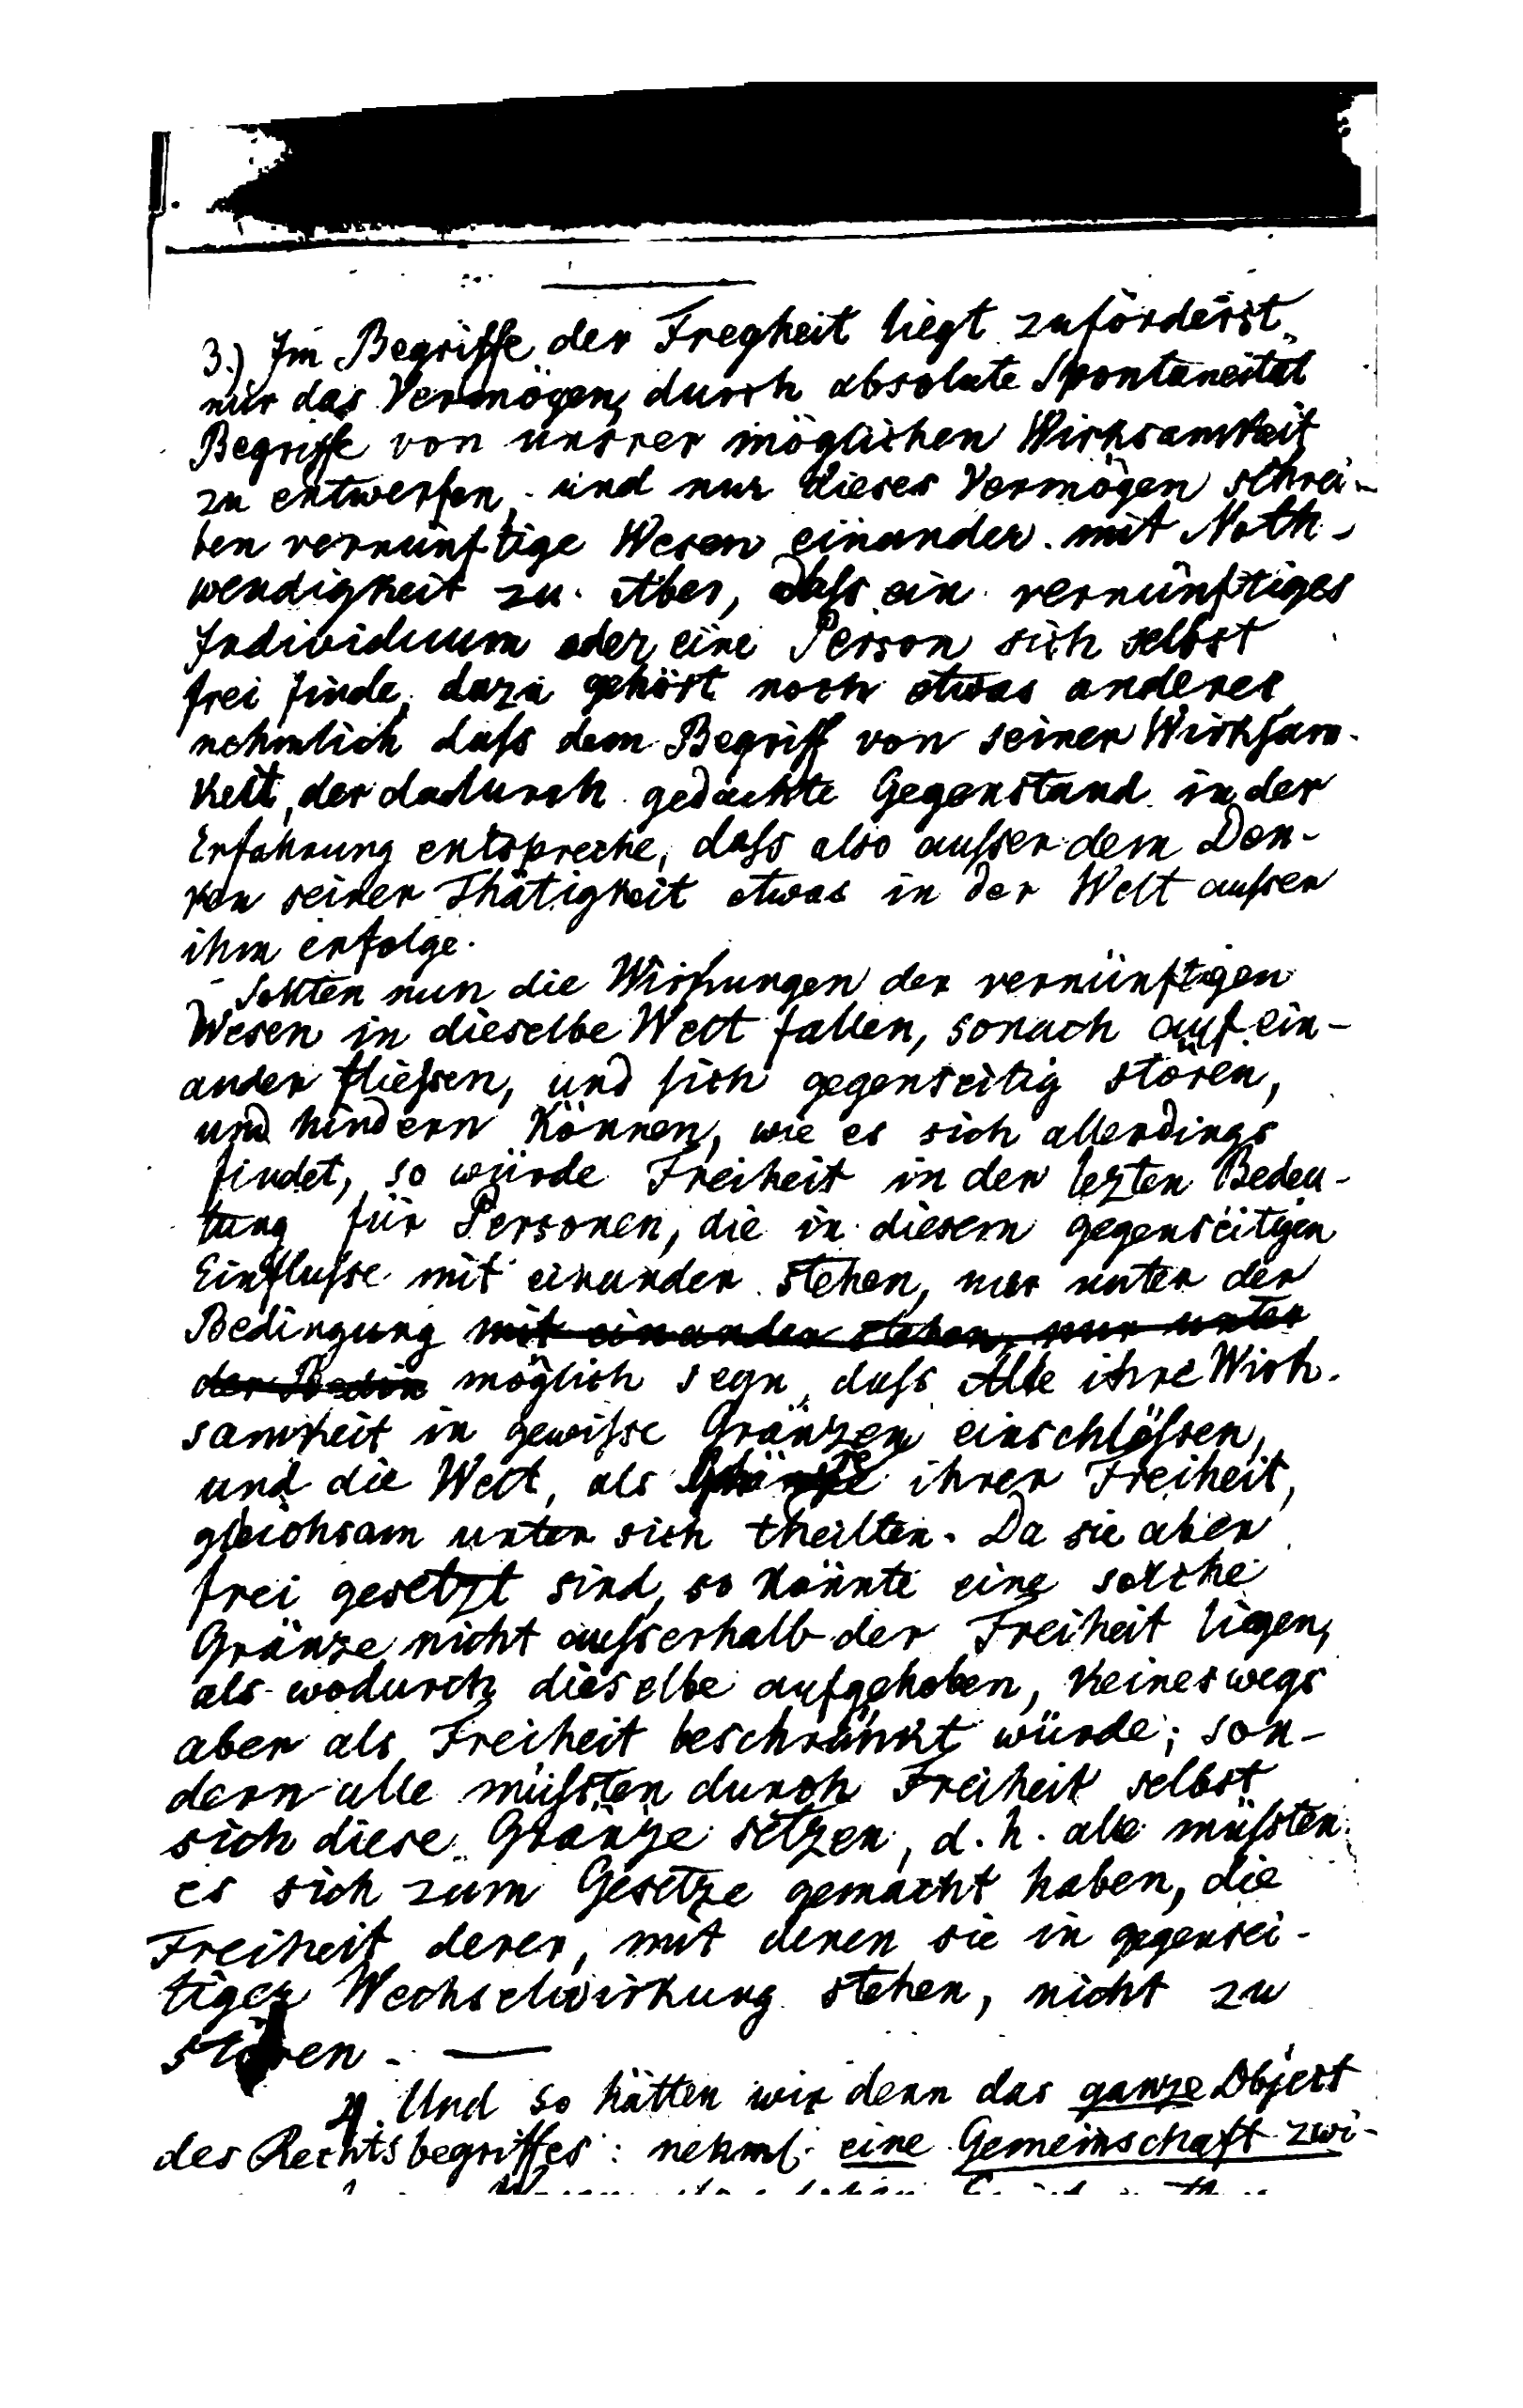 3.) Im Begriffe der Freyheit liegt zuförderst
nur das Vermögen, durch absolute Spontaneität
Begriffe von unsrer möglichen Wirksamkeit
zu entwerfen, und nur dieses Vermögen schrei-
ben vernünftige Wesen einander mit Noth-
wendigkeit zu. Aber, daſs ein vernünftiges
Individuum oder eine Person sich selbst
frei finde, dazu gehört noch etwas anderes
nehmlich daſs dem Begriff von seiner Wirkſam-
keit, der dadurch gedachte Gegenstand in der
Erfahrung entspreche, daſs also auſser dem Den-
ken seiner Thätigkeit etwas in der Welt auſser
ihm erfolge.
Sollten nun die Wirkungen der vernünftigen
Wesen in dieselbe Welt fallen, sonach auf ein-
ander flieſsen, und ſich gegenseitig stören,
und hindern können, wie es sich allerdings
findet, so würde Freiheit in der lezten Bedeu-
tung für Personen, die in diesem gegenseitigen
Einfluſse mit einander stehen, nur unter der
Bedingung mit einander stehen, nur unter
der Bedin möglich seyn, daſs Alle ihre Wirk-
samkeit in gewiſse Gränzen einschlöſsen,
und die Welt, als ihrer Freiheit,
gleichsam unter sich theilten. Da sie aber
frei gesetzt sind, so könnte eine solche
Gränze nicht auſserhalb der Freiheit liegen,
als wodurch dieselbe aufgehoben, keineswegs
aber als Freiheit beschränkt würde; son-
dern alle müſsten durch Freiheit selbst
sich diese Gränze setzen, d. h. alle müſsten
es sich zum Gesetze gemacht haben, die
Freiheit derer, mit denen sie in gegensei-
tiger Wechselwirkung stehen, nicht zu
stören. —
4. Und so hätten wir denn das ganze Object
des Rechtsbegriffes: nehml. eine Gemeinschaft zwi-